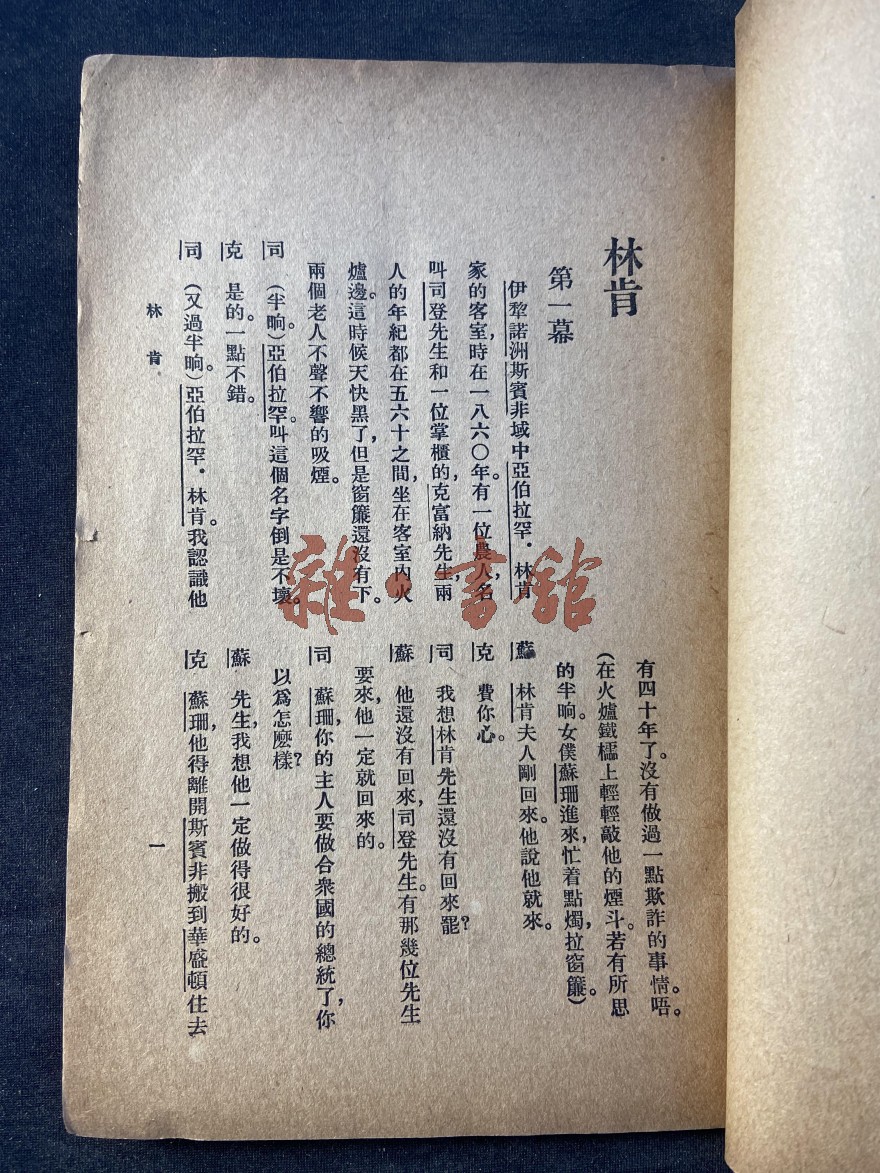 林肯
第一幕
伊犂諾洲斯賓非域中亞伯拉罕．林肯
家的客室，時在一八六〇年。有一位農人，名
叫司登先生和一位掌櫃的，克富納先生，兩
人的年紀都在五六十之間，坐在客室內火
爐邊。這時候天快黑了，但是窗簾還沒有下。
兩個老人不聲不響的吸煙。
司　（半晌。）亞伯拉罕。叫這個名字倒是不壞。
克　是的。一點不錯。
司　（又過半晌。）亞伯拉罕．林肯。我認識他
有四十年了。沒有做過一點欺詐的事情。唔。
（在火爐鐵檽上輕輕敲他的煙斗。若有所思
的半晌。女僕蘇珊進來，忙着點燭，拉窗簾。）
蘇　林肯夫人剛回來。他說他就來。
克　費你心。
司　我想林肯先生還沒有回來罷？
蘇　他還沒有回來，司登先生。有那幾位先生
要來，他一定就回來的。
司　蘇珊，你的主人要做合衆國的總統了，你
以爲怎麽樣？
蘇　先生，我想他一定做得很好的。
克　蘇珊，他得離開斯賓非搬到華盛頓住去
林肯
一
雜·書館